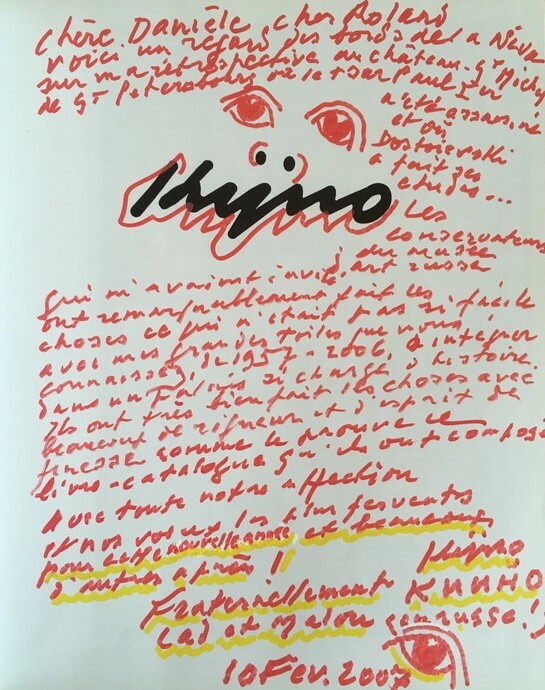 Chère Danièle, cher Roland
voici un regard des bords de la Néva
sur ma rétrospective au château St Michel
de St Petersbourg où le tsar Paul Ier
a été assassiné
et où
Dostoievski
a fait ses
études...
Kijno
Les
conservateurs
du musée
d'art russe
qui m'avaient invité
ont remarquablement fait les
choses ce qui n'était pas si facile
avec mes grandes toiles que vous
connaissez de 1957-2006, à intégrer
dans un palais si chargé d'histoire.
Ils ont très bien fait les choses avec
beaucoup de rigueur et d'esprit de
finesse comme le prouve ce
livre-catalogue qu'ils ont composé
Avec toute notre affection
et nos voeux les plus fervents
pour cette nouvelle année et beaucoup
d'autres après !
Fraternellement
Lad et Malou
Kijno
КИЙНО
en russe !
10 Fev. 2007